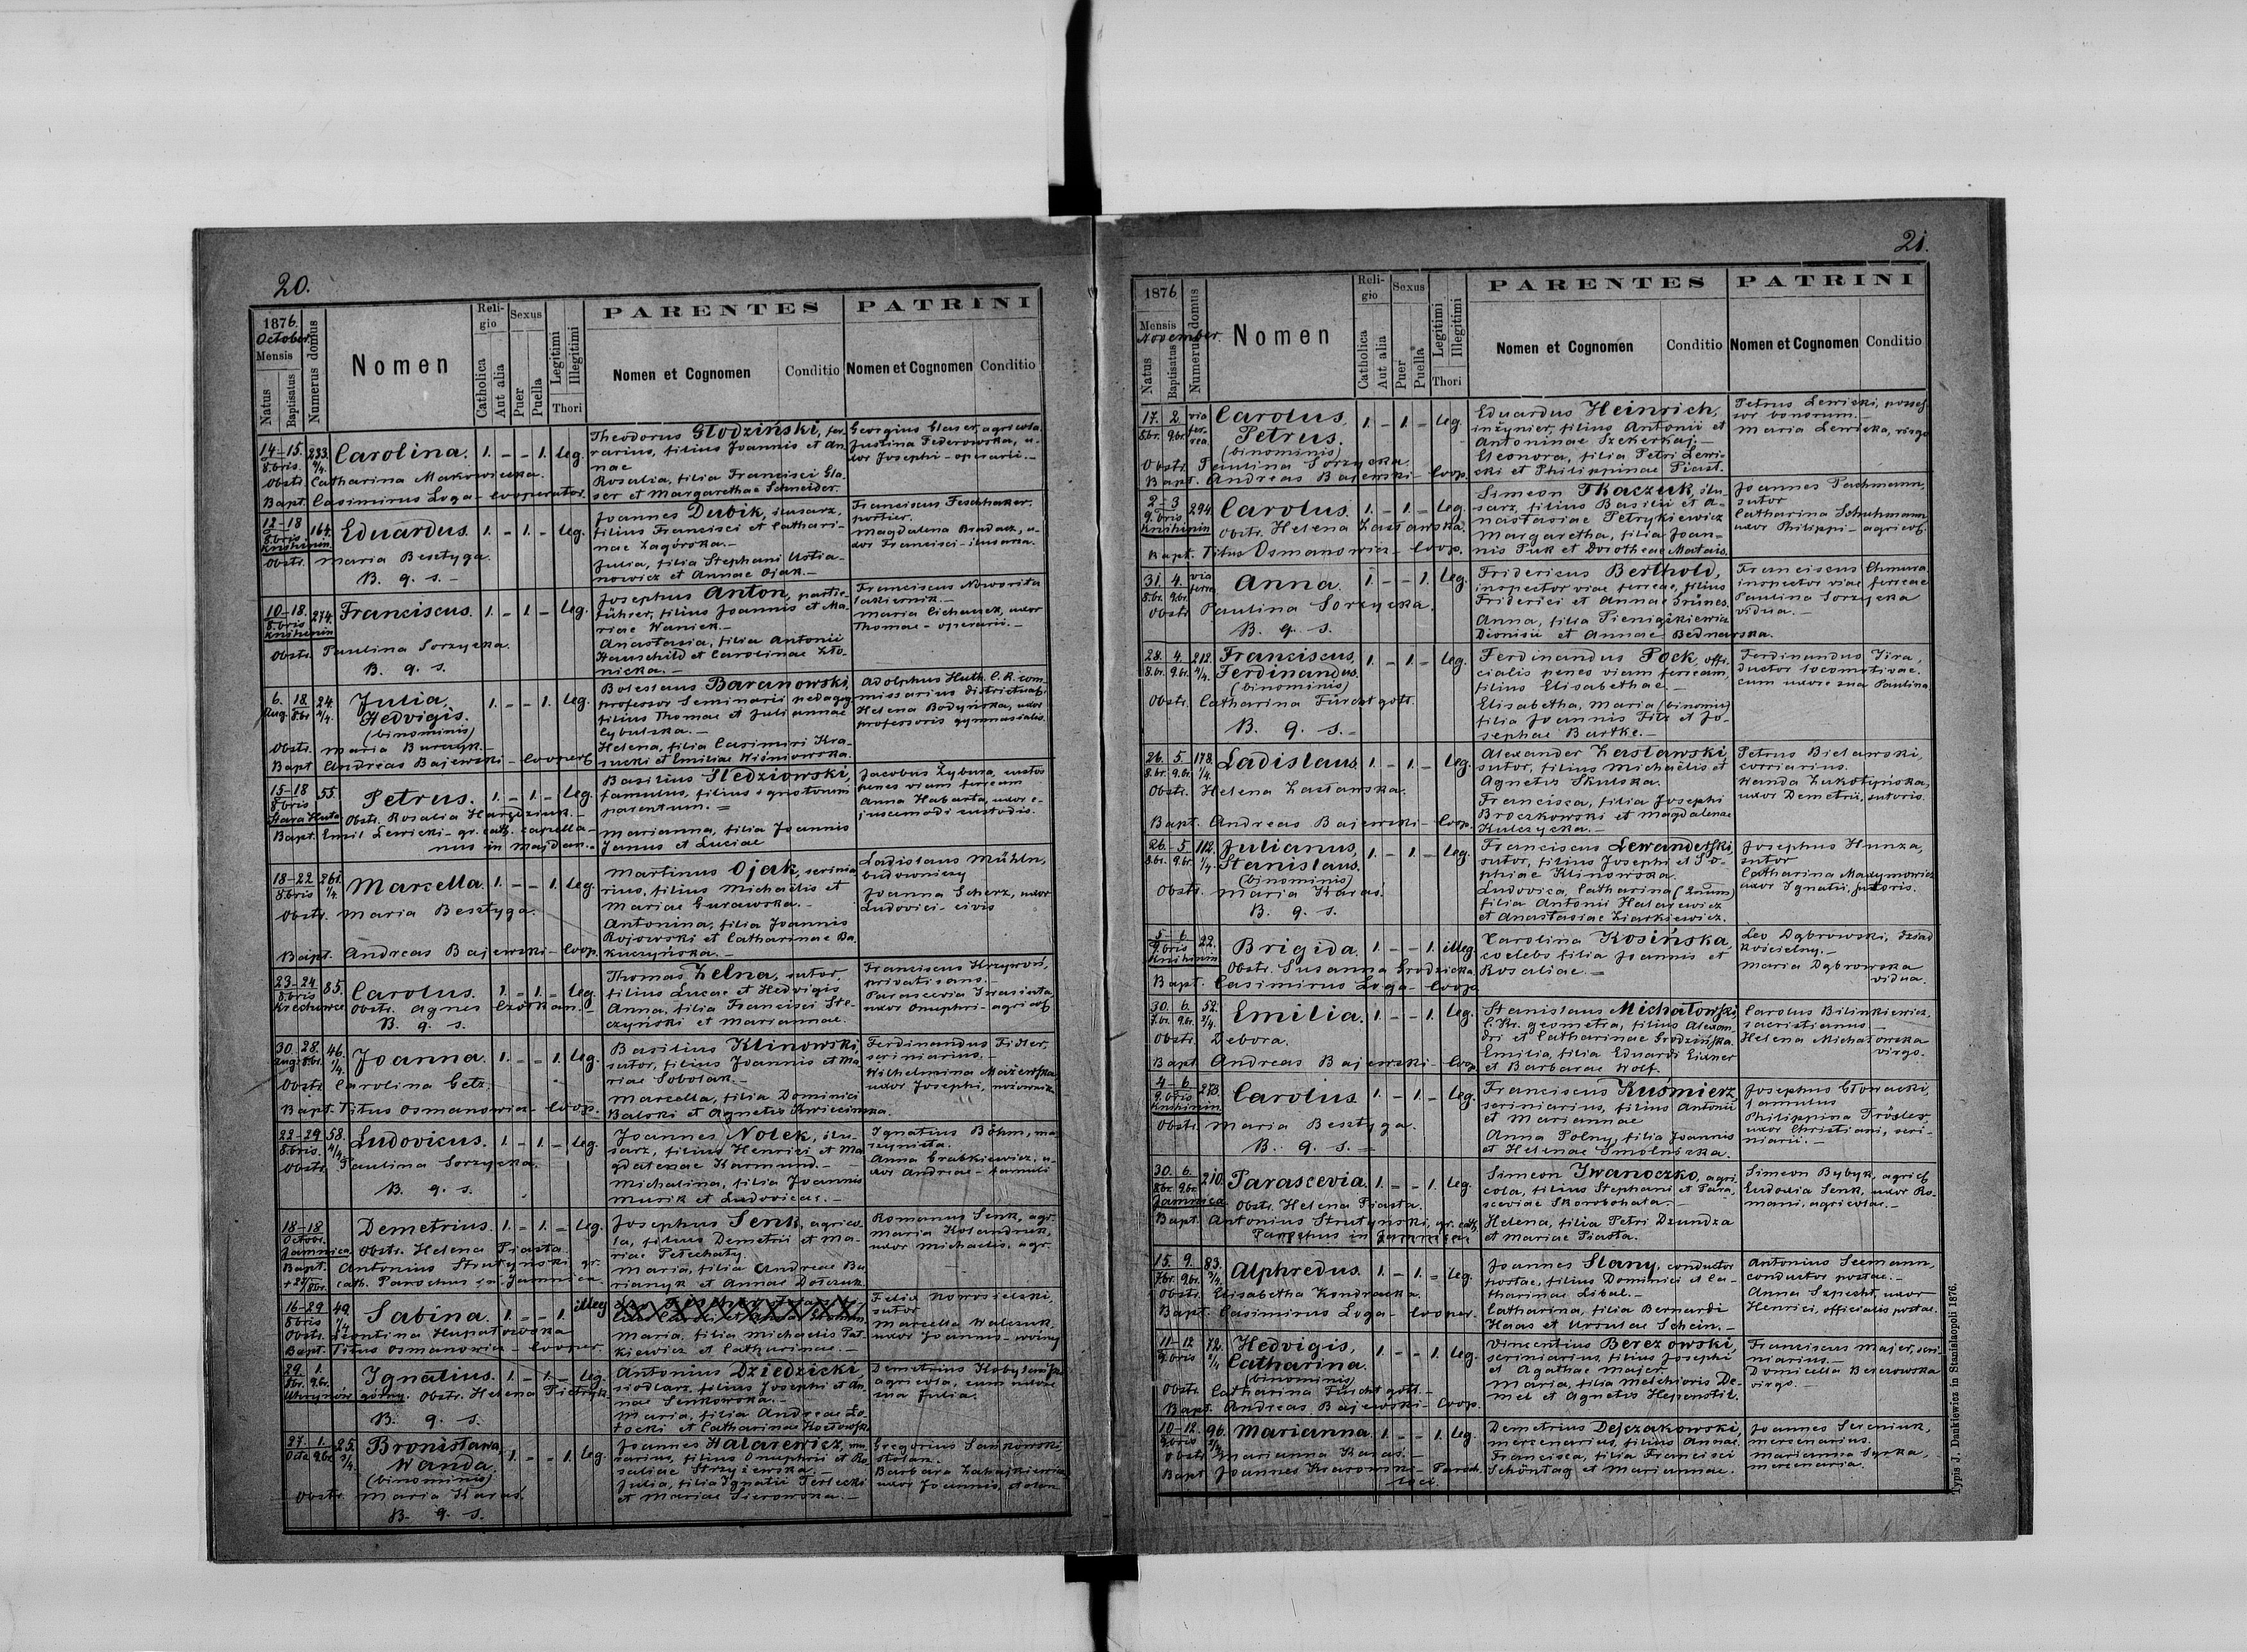 20.
1876.
October.
Mensis
Natus
Baptisatus
Numerus domus
Nomen
Religio
Catholica
Aut alia
Sexus
Puer
Puella
Legitimi
Illegitimi
Thori
PARENTES
Nomen et Cognomen
Conditio
PATRINI
Nomen et Cognomen
Conditio
14-15. 8.bris. 233. 2/4. Carolina. 1. - - 1. Leg.
Obstr. Catharina Makowiecka.
Bapt. Casimirus Loga - cooperator.
Theodorus Głodziński,
rarius, filius Joannis et An-
nae
Rosalia, filia Francisci Gla-
ser et Margarethae Schneider.
Georgius Glaser, agricola.
Justina Federowska, u-
xor Josephi - operarii. -
12-18 8.bris. 164. Knihinin Eduardus. 1. - 1. - Leg.
Obstr. Maria Besztyga.
B. q. s. -
Joannes Dubik, ślusarz,
filius Francisci et Cathari-
nae Zagórska. -
Julia, filia Stephani Ustia-
nowicz et Annae Ojak. -
Franciscus
portier.
Magdalena u-
xor Francisci - ślusarza.
10-18. 8.bris 274. Knihinin Franciscus. 1. - 1. - Leg.
Obstr. Paulina Sorzycka.
B. q. s.
Josephus Anton, partie-
führer, filius Joannis et Ma-
riae Waniek. -
Anastasia, filia Antonii
Hauschild et Carolinae Zło-
nicka. -
Franciscus Noworita
lakiernik. -
Maria uxor
Thomae - operarii. -
6. 18. Aug. 8.br. 24. 2/4. Julia,
Hedvigis.
(binominis) 1. - - 1. Leg.
Obstr. Maria Burczyk. -
Bapt Andreas Bajewski - cooper.
Boleslaus Baranowski,
professor Seminarii pedagog.
filius Thomae et Juliannae
Cybulska. -
Helena, filia Casimiri Kra-
sucki et Emiliae Wiśniowska.
Adolphus Huth. C. R. com-
missarius districtual.
Helena Bodyńska, uxor
professoris gymnasialis.
15-18 8bris 55. Stara Huta Petrus. 1. - 1. - Leg.
Obstr. Rosalia
Bapt. Emil Lewicki - gr. cath. capella-
nus in Majdan. -
Basilius Śledziowski,
famulus, filius ignotorum
parentum. =
Marianna, filia Joannis
Janus et Luciae
Jacobus Żybura, custos
penes viam ferream
Anna Habarta, uxor e-
juscemodi custodis.
18-22 8bris 261. 1/4. Marcella. 1. - - 1. Leg.
Obstr. Maria Besztyga.
Bapt. Andreas Bajewski - Coop.
Martinus Ojak, scrinia
rius, filius Michaelis et
Mariae Gurawska. -
Antonina, filia Joannis
Rojowski et Catharinae Ba
kuczyńska. -
Ladislaus Mühln,
budowniczy
Joanna Scherz, uxor
Ludovici - civis
23-24 8.bris 85. Krechowce Carolus. 1. - 1. - Leg.
Obstr. Agnes
B. q. s.
Thomas Zelna, sutor,
filius Lucae et Hedvigis
Anna, filia Francisci Ste-
czyński et Mariannae.
Franciscus Krzywoń,
privatisans. -
Parascevia
uxor Onuphri - agricol.
30. 28. Aug. 8.br. 46. 1/4. Joanna. 1. - - 1. Leg.
Obstr. Carolina Getz.
Bapt. Titus Osmanowicz - Coop.
Basilius Klinowski,
sutor, filius Joannis et Ma
riae Sobolak. -
Marcella, filia Dominici
Balski et Agnetis Kwiecińska.
Ferdinandus Fidler,
scriniarius. -
Wilhelmina Mażewska
uxor Josephi,
22-29 8.bris. 58. 4/4. Ludovicus. 1. - 1. - Leg.
Obstr. Paulina Sorzycka.
B. q. s.
Joannes Nolek, ślu-
sarz, filius Henrici et Ma
gdalenae Karmund. -
Michalina, filia Joannis
Murik et Ludovicae. -
Ignatius Böhm, ma
szynista.
Anna Grabkiewicz, u-
xor Andreae - famuli
18-18 Octobr. Jamnica Demetrius. 1. - 1. - Leg.
Obstr. Helena Piasta.
Bapt. Antonius Strutyński gr.
cath. Parochus in Jamnica.
Josephus Senk, agrico-
la, filius Demetrii et Ma-
riae Petechaty.
Maria, filia Andreae Ba
rianyk et Annae
Romanus Senk, agr.
Maria Holandruk,
uxor Michaelis, agr.
16-29 8bris 49. 1/4 Sabina. 1. - - 1. illeg
Obstr. Leontina Hupałowska
Bapt. Titus Osmanowicz - Cooper.
Maria, filia Michaelis Pat-
kiewicz et Catharinae. -
Felix Nowosielski,
sutor
Marcella Walczuk,
uxor Joannis - woźny
29. 1. 8br. 9.br. Uhrynów górny. Ignatius. 1. - 1. - Leg.
Obstr. Helena
B. q. s.
Antonius Dziedzicki,
siodlarz, filius Josephi et An
nae Senkowska. -
Maria, filia Andreae Ło-
tocki et Catharinae
Demetrius
agricola, cum uxore
sua Julia.
27. 1. Octb 9.br. 25. 3/4. Bronisława,
Wanda
(binominis) 1. - - 1. Leg.
Obstr. Maria Karaś.
B. q. s.
Joannes Halarewicz, mu
rarius, filius Onuphrii et Ro
saliae Strzyżewska. -
Julia, filia Ignatii Terlecki
et Mariae Sierowska. -
Gregorius Sankowski,
stolarz.
Barbara
uxor Joannis,
21.
1876
Mensis
November.
Natus
Baptisatus
Numerus domus
Nomen
Religio
Catholica
Aut alia
Sexus
Puer
Puella
Legitimi
Illegitimi
Thori
PARENTES
Nomen et Cognomen
Conditio
PATRINI
Nomen et Cognomen
Conditio
17. 2 8.br. 9.br. via ferrea Carolus,
Petrus.
(binominis) 1. - 1. - Leg.
Obstr. Paulina Sorzycka.
Bapt. Andreas Bajewski - Coop.
Eduardus Heinrich,
inżynier, filius Antonii et
Antoninae Szekerkaj. -
Eleonora, filia Petri Lewi-
cki et Philippinae Piast.
Petrus Lewicki, posses
sor bonorum. -
Maria Lewicka, virgo
2-3 9.bris 294 Knihinin Carolus. 1. - 1. - Leg.
Obstr. Helena Zastawska.
Bapt. Titus Osmanowicz - Coop.
Simeon Tkaczuk, ślu-
sarz, filius Basilii et A-
nastasiae Petrykiewicz
Margaretha, filia Joan-
nis Puk et Dorotheae Matais.
Joannes Pachmann,
sutor
Catharina Schuhmann
uxor Philippi - agricol.
31. 4. 8.br. 9.br. via ferrea Anna. 1. - - 1. Leg.
Obstr Paulina Sorzycka.
B. q. s.
Fridericus Berthold,
inspector viae ferreae, filius
Friderici et Annae Grünes.
Anna, filia Pieniążkiewicz
Dionisii et Annae Bednarska.
Franciscus Chmura
inspector viae ferreae
Paulina Sorzycka
vidua. -
28. 4. 8.br. 9.br. 212. 4/4. Franciscus,
Ferdinandus.
(binominis) 1. - 1. - Leg.
Obstr. Catharina Fürchtgott.
B. q. s. -
Ferdinandus Pock, offi-
cialis penes viam ferream,
filius Elisabethae. -
Elisabetha, Maria (binomis)
filia Joannis Fitz et Jo-
sephae Bartke. -
Ferdinandus Jira,
ductor locomotivae.
cum uxore sua Paulina
26. 5. 8.br. 9.br. 178. 1/4. Ladislaus 1. - 1. - Leg.
Obstr. Helena Zastawska.
Bapt. Andreas Bajewski - Coop.
Alexander Zastawski,
sutor, filius Michaelis et
Agnetis Skulska.
Francisca, filia Josephi
Broczkowski et Magdalenae
Kulczycka. -
Petrus Bielawski,
corriarius.
Wanda
uxor Demetrii, sutoris.
26. 5. 8.br. 9.br. 112. 1/4. Julianus,
Stanislaus.
(binominis) 1. - 1. - Leg.
Obstr. Maria Karaś.
B. q. s.
Franciscus Lewandowski,
sutor, filius Josephi et So-
phiae Klinowska.
Ludovica, Catharina (2num)
filia Antonii Halarewicz
et Anastasiae Ziarkiewicz.
Josephus Hunza,
sutor
Catharina Maxymowicz
uxor Ignatii, sutoris.
5-6. 9.bris 22. Knihinin Brigida 1. - - 1. illeg.
Obstr. Susanna Grodzicka.
Bapt. Casimirus Loga - Coop
Carolina Kosińska,
coelebs filia Joannis et
Rosaliae. -
Leo Dąbrowski, dziad
kościelny. -
Maria Dąbrowska
vidua.
30. 6. 7.br. 9.br. 52. 2/4. Emilia. 1. - - 1. Leg.
Obstr. Debora.
Bapt Andreas Bajewski - Coop
Stanislaus Michałowski,
C. Kr. geometra, filius Alexan-
dri et Catharinae Grodzińska.
Emilia, filia Eduardi Eidner
et Barbarae Wolf.
Carolus Bilinkiewicz,
sacristianus -
Helena Michałowska
virgo.
4-6 9.bris 273. Knihinin Carolus 1. - 1. - Leg.
Obstr. Maria Besztyga.
B. q. s. -
Franciscus Kuśmierz,
scriniarius, filius Antonii
et Mariannae
Anna Polny, filia Joannis
et Helenae Smolniszka.
Josephus Głowacki,
famulus
Philippina Tröster
uxor Christiani, scri-
niarii. -
30. 6. 8.br. 9.br. 210. Jamnica Parascevia. 1. - - 1. Leg.
Obstr. Helena Piasta.
Bapt. Antonius Strutynski, gr. cath.
Parochus in Jamnica
Simeon Iwanoczko, agri
cola, filius Stephani et Para
sceviae Skorbohata. -
Helena, filia Petri Dzundza
et Mariae Piasta.
Simeon Bybyk, agricol
Eudoxia Senk, uxor Ro-
mani, agricolae. -
15. 9. 7.br. 9.br. 83. 2/4. Alphredus. 1. - 1. - Leg.
Obstr. Elisabetha Kondracka.
Bapt. Casimirus Loga - Cooper.
Joannes Slany, conductor
postae, filius Dominici et Ca-
tharinae Libal. -
Catharina, filia Bernardi
Haas et Ursulae Schein. -
Antonius Seemann,
conductor postae. -
Anna Szpecht, uxor
Henrici, officialis postae.
11-12 9.bris 72. 2/4 Hedvigis,
Catharina.
(binominis) 1. - - 1. Leg.
Obstr. Catharina Fürchtgott. -
Bapt. Andreas Bajewski - Coop.
Vincentius Berezowski,
scriniarius, filius Josephi
et Agathae Majer
Maria, filia Melchioris De-
mel et Agnetis Hepenstil.
Franciscus Majer, scri-
niarius. -
Domicella Berezowska
virgo. -
10-12. 9.bris 96. Marianna. 1. - - 1. Leg.
Obstr Marianna Karaś. -
Bapt Joannes Krasowski - Paroch.
loci.
Demetrius Dejczakowski,
mercenarius, filius Annae.
Francisca, filia Francisci
Schöntag et Mariannae.
Joannes Sereniuk,
mercenarius.
Marianna Syrka,
mercenaria.
Typis J. Dankiewicz in Stanislaopoli 1876.